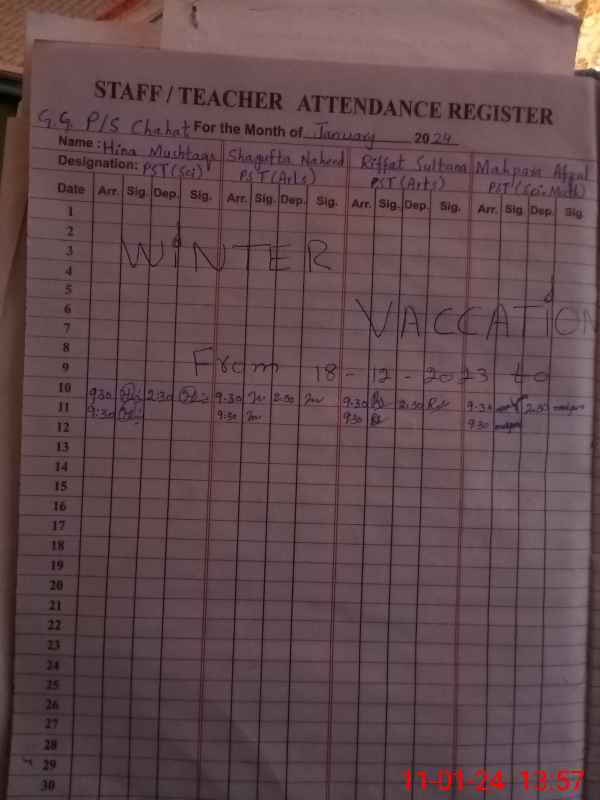 STAFF / TEACHER ATTENDANCE REGISTER
G.G. P/S Chahat For the Month of January 2024
Name: Hina Mushtaq Shagufta Naheed Riffat Sultana Mahpara Afzal
Designation: PST(Sci) PST(Arts) PST(Arts) PST(Sci-Math)
Date Arr. Sig. Dep. Sig. Arr. Sig. Dep. Sig. Arr. Sig. Dep. Sig. Arr. Sig. Dep. Sig.
1
2
3 WINTER
4
5
6 VACCATION
7
8
9 From 18-12-2023 to
10 9:30 2:30 9:30 2:30 9:30 2:30 9:30 2:30
11 9:30 9:30 9:30 9:30
12
13
14
15
16
17
18
19
20
21
22
23
24
25
26
27
28
29
30
11-01-24 13:57